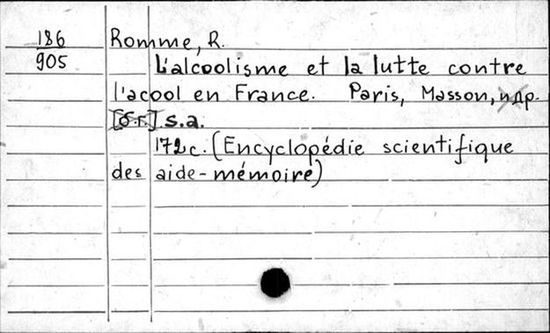 186 Romme, R.
905 L'alcoolisme et la lutte contre
l'acool en France. Paris, Masson, и др.
[б.г.] s.a.
172 с. (Encyclopédie scientifique
des aide-mémoire)